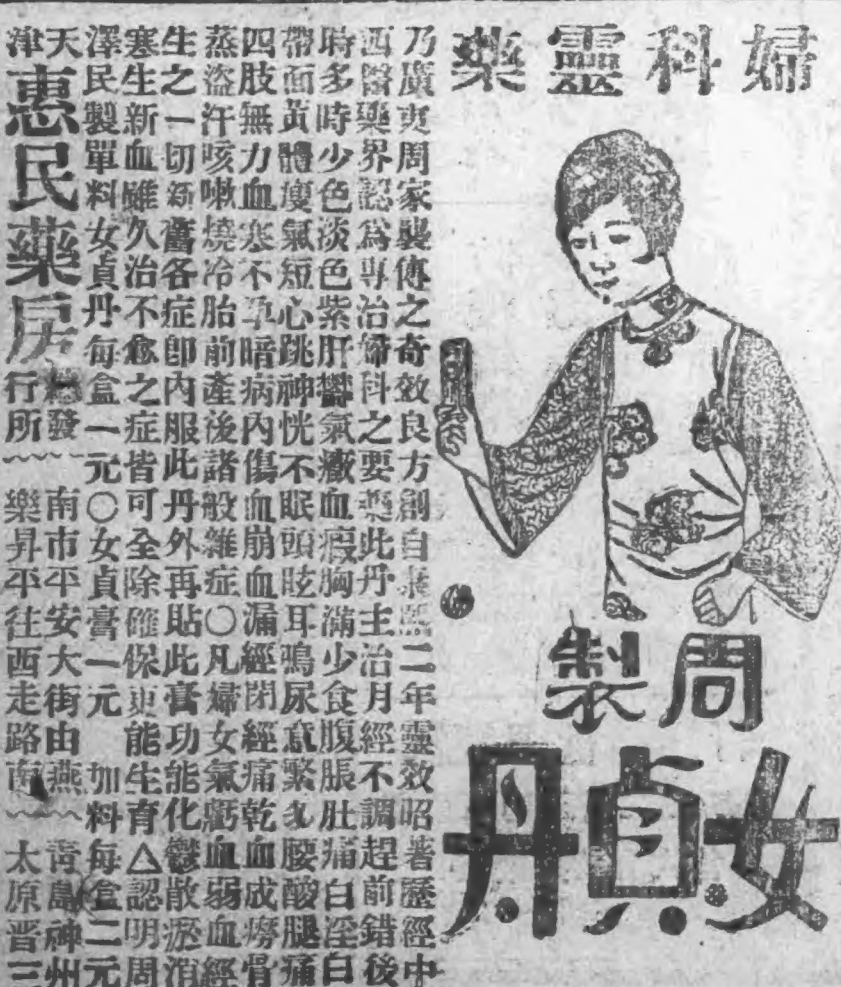 婦科靈藥
周製
女貞丹
乃廣東周家襲傳之奇效良方創自康熙二年靈效昭著歷經中
西醫藥界認爲專治婦科之要藥此丹主治月經不調趕前錯後
時多時少色淡色紫肝鬱氣癥血瘕胸滿少食腹脹肚痛白淫白
帶面黃體瘦氣短心跳神恍不眠頭眩耳鳴尿意緊多腰酸腿痛
四肢無力血寒不孕暗病內傷血崩血漏經閉經痛乾血成癆骨
蒸盜汗咳嗽燒冷胎前產後諸般雜症〇凡婦女氣虧血弱血經
生之一切新舊各症卽內服此丹外再貼此膏功能化鬱散瘀消
寒生新血雖久治不愈之症皆可全除確保更能生育△認明周
澤民製單料女貞丹每盒一元〇女貞膏一元 加料每盒二元
天津惠民藥房總發行所
南市平安大街由燕樂昇平往西走路南
青島神州
太原晋三